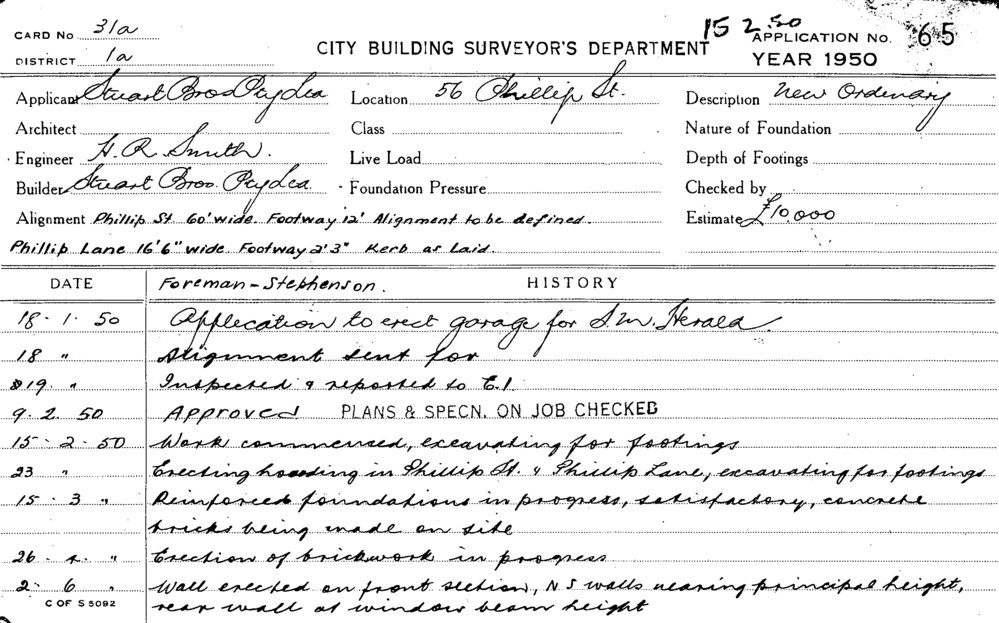 CARD No 31a
DISTRICT 1a
CITY BUILDING SURVEYOR'S DEPARTMENT
15 2.50
APPLICATION No. 65
YEAR 1950
Applicant Stuart Bros Pty Ltd Location 56 Phillip St. Description New Ordinary
Architect Class Nature of Foundation
Engineer H. R. Smith. Live Load Depth of Footings
Builder Stuart Bros. Pty Ltd. Foundation Pressure Checked by
Alignment Phillip St 60' wide. Footway 12' Alignment to be defined. Estimate £10000
Phillip Lane 16'6" wide. Footway 2'3" Kerb as Laid.
DATE Foreman - Stephenson. HISTORY
18 · 1 · 50 Application to erect garage for S.M. Herald.
18 " Alignment sent for
19 " Inspected & reported to C.I.
9. 2. 50 Approved PLANS & SPECN. ON JOB CHECKED
15 - 2 - 50 Work commenced, excavating for footings
23 " Erecting hoarding in Phillip St. & Phillip Lane, excavating for footings
15 - 3 " Reinforced foundations in progress, satisfactory, concrete
bricks being made on site
26 - 4 - " Erection of brickwork in progress
2 - 6 " Wall erected on front section, N S walls nearing principal height,
rear wall at window beam height
C OF S 5092